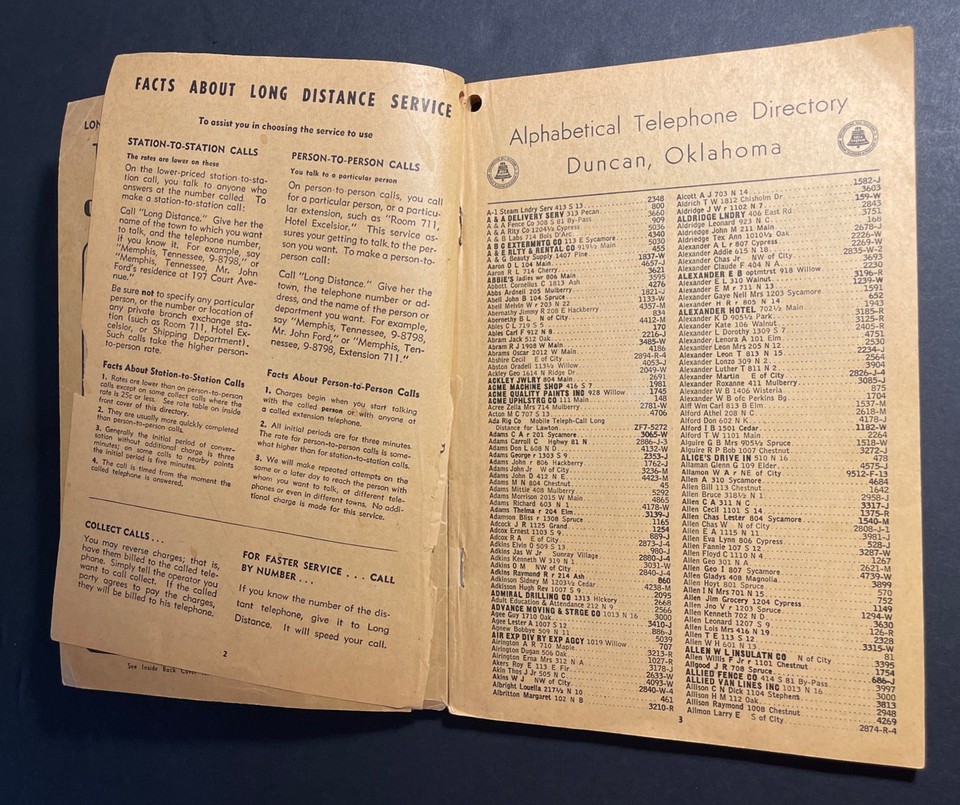 FACTS ABOUT LONG DISTANCE SERVICE
To assist you in choosing the service to use
STATION-TO-STATION CALLS
The rates are lower on these
On the lower-priced station-to-sta-
tion call, you talk to anyone who
answers at the number called. To
make a station-to-station call:
Call "Long Distance." Give her the
name of the town to which you want
to talk, and the telephone number,
if you know it. For example, say
"Memphis, Tennessee, 9-8798," or
"Memphis, Tennessee, Mr. John
Ford's residence at 197 Court Ave-
nue."
Be sure not to specify any particular
person, or the number or location of
any private branch exchange sta-
tion (such as Room 711, Hotel Ex-
celsior, or Shipping Department).
Such calls take the higher person-
to-person rate.
Facts About Station-to-Station Calls
1. Rates are lower than on person-to-person
calls except on some collect calls where the
rate is 25c or less. See rate table on inside
front cover of this directory.
2. They are usually more quickly completed
than person-to-person calls.
3. Generally the initial period of conver-
sation without additional charge is three
minutes; on some calls to nearby points
the initial period is five minutes.
4. The call is timed from the moment the
called telephone is answered.
PERSON-TO-PERSON CALLS
You talk to a particular person
On person-to-person calls, you call
for a particular person, or a particu-
lar extension, such as "Room 711,
Hotel Excelsior." This service as-
sures your getting to talk to the per-
son you want. To make a person-to-
person call:
Call "Long Distance." Give her the
town, the telephone number or ad-
dress, and the name of the person or
department you want. For example,
say "Memphis, Tennessee, 9-8798,
Mr. John Ford," or "Memphis, Ten-
nessee, 9-8798, Extension 711."
Facts About Person-to-Person Calls
1. Charges begin when you start talking
with the called person or with anyone at
a called extension telephone.
2. All initial periods are for three minutes.
The rate for person-to-person calls is some-
what higher than for station-to-station calls.
3. We will make repeated attempts on the
same or a later day to reach the person with
whom you want to talk, at different tele-
phones or even in different towns. No addi-
tional charge is made for this service.
COLLECT CALLS . . .
You may reverse charges; that is,
have them billed to the called tele-
phone. Simply tell the operator you
want to call collect. If the called
party agrees to pay the charges,
they will be billed to his telephone.
FOR FASTER SERVICE . . . CALL
BY NUMBER . . .
If you know the number of the dis-
tant telephone, give it to Long
Distance. It will speed your call.
2
See Inside Back
Alphabetical Telephone Directory
Duncan, Oklahoma
A-1 Steam Lndry Serv 413 S 13 2348
A & A DELIVERY SERV 313 Pecan 800
A & A Fence Co 308 S 81 By-Pass 909
A & A Rlty Co 1204½ Cypress 5036
A & B Labs 714 Bois D'Arc 4340
A B C EXTERMNTG CO 113 E Sycamore 5030
A & E RLTY & RENTAL CO 919½ Main 455
A & G Beauty Supply 1407 Pine 1837-W
Aaron O L 104 Main 4657-J
Aaron R L 714 Cherry 3621
ABBIE'S ladies wr 806 Main 3595
Abbott Cornelius C 1813 Ash 4276
Abbs Ardnell 205 Mulberry 1821-J
Abell John B 104 Spruce 1133-W
Abell Melvin W r 203 N 22 4357-M
Abernathy Jimmy R 208 E Hackberry 834
Abernethy B L N of City 4412-M
Ables C L 719 S 5 170
Ables Carl F 912 N 8 2216-J
Abram Jack 512 Oak 3485-W
Abram R J 1908 W Main 4186
Abrams Oscar 2012 W Main 2894-R-4
Abshire Cecil E of City 4053-J
Abston Oradell 113½ Willow 2049-W
Ackley Geo 1614 N Ridge Dr 2691
ACKLEY JWLRY 804 Main 1981
ACME MACHINE SHOP 416 S 7 1745
ACME QUALITY PAINTS INC 928 Willow 1166
ACME UPHLSTRG CO 111 Main 148
Acree Zella Mrs 714 Mulberry 2781-W
Acton M C 707 S 13 4706
Ada Rig Co Mobile Teleph-Call Long
Distance for Lawton 2F7-5272
Adams C A r 201 Sycamore 3065-W
Adams Carroll C Highwy 81 N 2132-J
Adams Don L 608 N D 4132-W
Adams George r 1303 S 9 2353-J
Adams John r 806 Hackberry 1762-J
Adams John Jr W of City 3236-M
Adams John D 412 N E 4423-M
Adams M N 804 Chestnut 45
Adams Mittie 408 Mulberry 5292
Adams Morrison 2015 W Main 4865
Adams Richard 603 N 1 4178-W
Adams Thelma r 204 Elm 3139-J
Adamson Bliss r 1308 Spruce 1165
Adcock J R 1125 Grand 1254
Adcox Ernest 1103 S 9 889-J
Adcox R A E of City 2873-J-4
Adkins Elvin O 509 S 13 980-J
Adkins Jas W Jr Sunray Village 2880-J-4
Adkins Kenneth W 319 N 1 3031-W
Adkins O M NW of City 2840-J-4
Adkins Raymond R r 214 Ash 860
Adkinson Sidney M 1203½ Cedar 4238-M
Adkisson Hugh Rev 1007 S 9 2095
ADMIRAL DRILLING CO 1313 Hickory 2668
Adult Education & Attendance 212 N 9 2566
ADVANCE MOVING & STRGE CO 1013 N 16 3000
Agee Guy 1710 Oak 3410-J
Agee Lester A 1007 S 12 886-J
Agnew Bobbye 509 N 11 5039
AIR EXP DIV RY EXP AGCY 1019 Willow 707
Airington A R 710 Maple 3213-R
Airington Dugan 506 Oak 1027-R
Airington Erna Mrs 312 N A 3178-J
Akers Roy E 113 E Fir 2633-W
Akin Thos J Jr 505 N C 4093-W
Akins W J NW of City 2840-W-4
Albright Louella 217½ N 10 461
Albritton Margaret 102 N B 3210-R
Alcott A J 703 N 14 1582-J
Aldrich T W 1812 Chisholm Dr 3603
Aldridge J W r 1102 N 7 159-W
ALDRIDGE LNDRY 406 East Rd 2843
Aldridge Leonard 923 N C 3751
Aldridge John M 211 Main 168
Aldridge Tex Ann 1010½ Oak 2678-J
Alexander A L r 807 Cypress 2226-W
Alexander Addie 615 N 18 2269-W
Alexander Chas Jr NW of City 2835-W-2
Alexander Claude F 404 N A 3693
ALEXANDER E B optmtrst 918 Willow 2230
Alexander E L 310 Walnut 3196-R
Alexander E M r 711 N 13 1239-W
Alexander Gaye Neil Mrs 1203 Sycamore 1591
Alexander H R r 805 N 14 652
ALEXANDER HOTEL 702½ Main 1943
Alexander K D 905½ Park 3185-R
Alexander Kate 106 Walnut 3125-R
Alexander L Dorothy 1309 S 7 2405-R
Alexander Lenora A 101 Elm 4751
Alexander Leon Mrs 205 N 12 2530
Alexander Leon T 813 N 15 2234-J
Alexander Lonzo 309 N 2 2564
Alexander Luther T 811 N 2 3904
Alexander Martin E of City 2826-J-4
Alexander Roxanne 411 Mulberry 3085-J
Alexander W B 1406 Wisteria 875
Alexander W B ofc Perkins Bg 1704
Alff Wm Carl 813 B Elm 1537-M
Alford Athel 208 N C 2618-M
Alford Don 602 N K 4178-J
Alford I B 1501 Cedar 1182-W
Alford T W 1101 Main 2264
Alguire G B Mrs 905½ Spruce 1518-W
Alguire R P Bob 1007 Chestnut 3272-J
ALICE'S DRIVE IN 510 N 16 478
Allaman Glenn G 109 Elder 4575-J
Allamon W A r NE of City 9512-F-13
Allen A 310 Sycamore 4684
Allen Bill 113 Chestnut 1642
Allen Bruce 318½ N 1 2958-J
Allen C A 311 N C 3317-J
Allen Cecil 1101 S 14 1375-R
Allen Chas Lester 804 Sycamore 1540-M
Allen Chas W N of City 2808-J-1
Allen E A 1115 N 11 3981-J
Allen Eva Lynn 806 Cypress 528-J
Allen Fannie 107 S 12 3287-W
Allen Floyd C 1110 N 4 1267
Allen Geo 301 N A 2621-M
Allen Geo I 807 Sycamore 4739-W
Allen Gladys 408 Magnolia 3899
Allen Hoyt 801 Spruce 570
Allen I N Mrs 701 N 15 752
Allen Jim Grocery 1204 Cypress 1149
Allen Jno V r 1203 Spruce 1294-W
Allen Kenneth 702 N D 3630
Allen Leonard 1207 S 9 126-R
Allen Lois Mrs 416 N 19 2328
Allen T E 113 S 12 3315-W
Allen W H 601 N 13 81
ALLEN W L INSULATN CO N of City 3395
Allen Willis F Jr r 1101 Chestnut 1754
Allgood J R 708 Spruce 686-J
ALLIED FENCE CO 414 S 81 By-Pass 3997
ALLIED VAN LINES INC 1013 N 16 3000
Allison C N Dick 1104 Stephens 3813
Allison H M 112 Oak 2948
Allison Raymond 1008 Chestnut 4269
Allmon Larry E S of City 2874-R-4
3